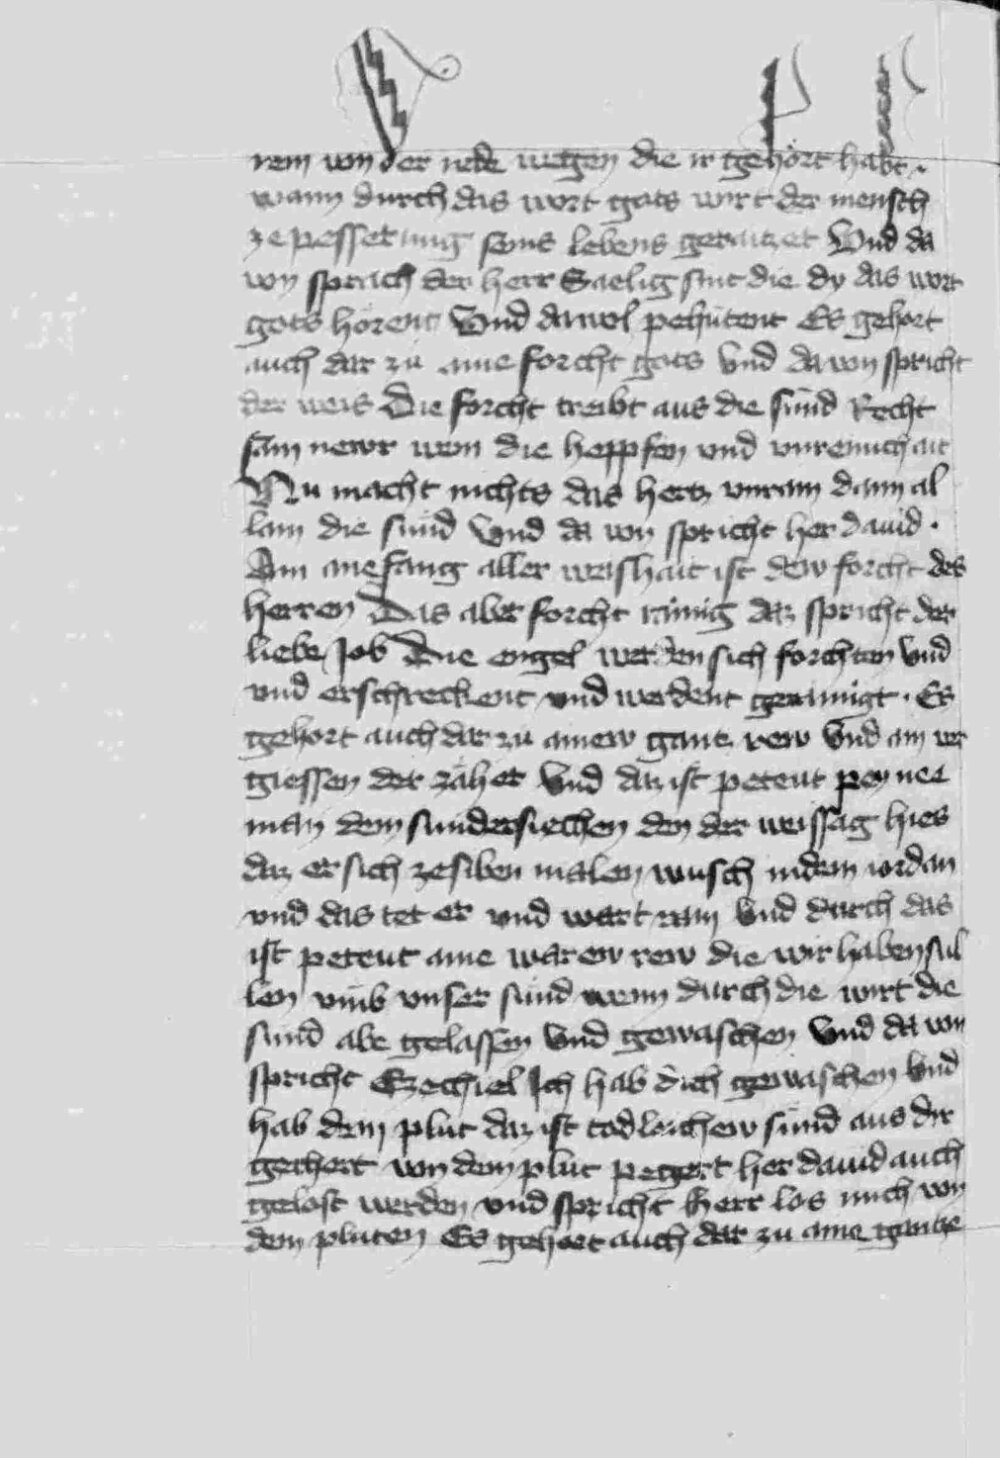 rein von der rede wegen die ir gehört habt ·
wann durch das wort gots wirt der mensch
ze pesserung seins lebens geraitzet Vnd da
von sprach der herr Saelig sint die dy das wort
gots hörent Vnd da wol pehütent Es gehort
auch dar zu aine forcht gots Vnd da von spricht
der weis Die forcht treibt aus die sünd Recht
sam newr wein die heppfen vnd vnrenuchait
Nu macht nichts das hertz vnrain dann al
lain die sünd Vnd da von spricht her dauid ·
Ain anefang aller weishait ist dew forcht des
herren Das aber forcht rainig daz spricht der
liebe Job Die engel werden sich forchten Vnd
vnd erschreckent vnd werdent gerainigt · Es
gehort auch dar zu ainew gantz rew Vnd ain ver
giessen der zäher Vnd daz ist peteut pey nee
man dem sundersiechen den der weissag hies
daz er sich ze siben malen wusch in dem iordan
vnd das tet er vnd wart rain Vnd durch das
ist peteut aine warew rew die wir haben sul
len vmb vnser sünd wenn durch die wirt die
sund abe gelassen Vnd gewaschen Vnd da von
spricht Ezechiel Ich hab dich gewaschen Vnd
hab dein plut daz ist tod leichew sünd aus dir
gechert von dem plut pegert her dauid auch
gelost werden vnd spricht Herr los mich von
den pluten Es gehort auch dar zu aine gantze